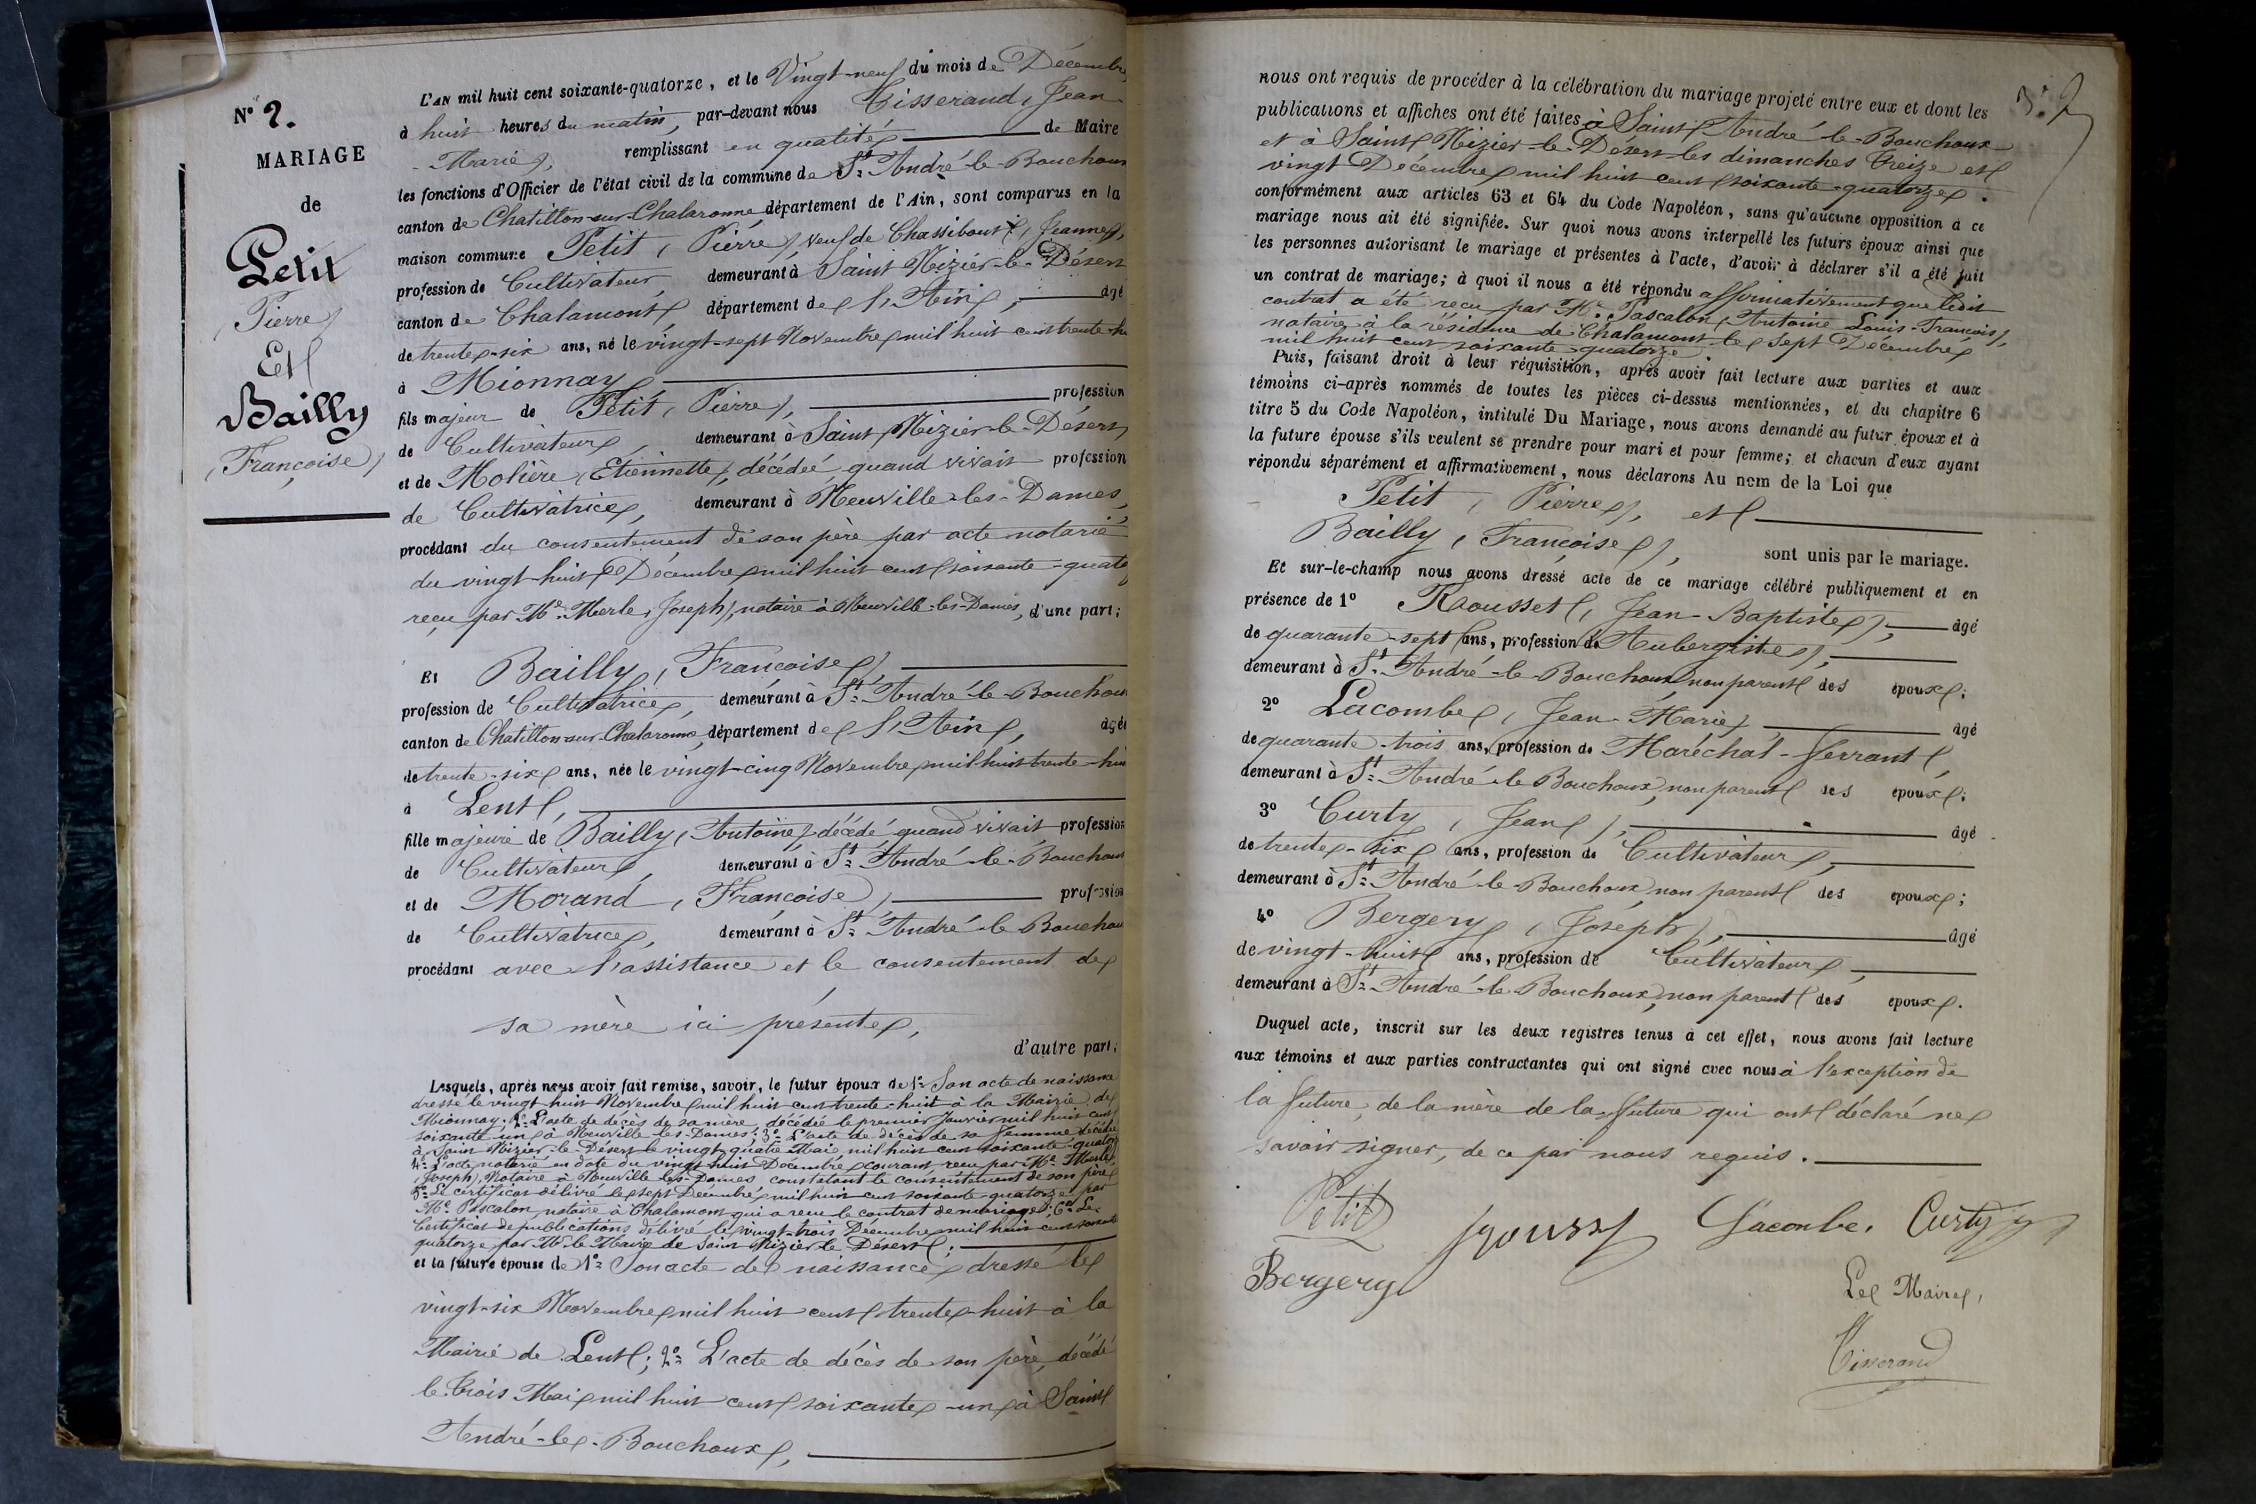 N° 2.
MARIAGE
de
Petit
(Pierre)
Et
Bailly
(Françoise)
L'AN mil huit cent soixante-quatorze, et le Vingt-neuf du mois de Décembre
à huit heures du matin, par-devant nous Tisserand, Jean-
-Marie), remplissant en qualité de Maire
les fonctions d'Officier de l'état civil de la commune de St André-le-Bouchoux
canton de Chatillon-sur-Chalaronne département de l'Ain, sont comparus en la
maison commune Petit, (Pierre) veuf de Chassibout, (Jeanne),
profession de Cultivateur, demeurant à Saint Nizier-le-Désert
canton de Chalamont, département de l'Ain, âgé
de trente-six ans, né le vingt-sept Novembre mil huit cent trente-hu
à Mionnay
fils majeur de Petit, (Pierre), profession
de Cultivateur, demeurant à Saint Nizier-le-Désert,
et de Molière, (Etiennette), décédée quand vivait profession
de Cultivatrice, demeurant à Neuville-les-Dames,
procédant du consentement de son père par acte notarié
du vingt huit Décembre mil huit cent soixante-quato
reçu par Me Merle, (Joseph), notaire à Neuville-les-Dames, d'une part;
Et Bailly, (Françoise)
profession de Cultivatrice, demeurant à St André-le-Bouchoux
canton de Chatillon-sur-Chalaronne, département de l'Ain, âgée
de trente-six ans, née le vingt-cinq Novembre mil huit trente-hui
à Lent,
fille majeure de Bailly, (Antoine) décédé quand vivait profession
de Cultivateur, demeurant à St André-le-Bouchoux
et de Morand, (Françoise) profession
de Cultivatrice, demeurant à St André-le Bouchou
procédant avec l'assistance et le consentement de
sa mère ici présente,
d'autre part;
Lesquels, après nous avoir fait remise, savoir, le futur époux de 1° Son acte de naissance
dressé le vingt huit Novembre mil huit cent trente-huit à la Mairie de
Mionnay; 2° L'acte de décès de sa mère, décédée le premier Janvier mil huit cent
soixante un à Neuville-les-Dames; 3° L'acte de décès de sa femme décédée
à Saint Nizier-le-Désert le vingt quatre Mai mil huit cent soixante-quator
4° L'acte notarié en date du vingt huit Décembre courant, reçu par Me Merle,
(Joseph), Notaire à Neuville les-Dames constatant le consentement de son père
5° Le certificat délivré le sept Décembre mil huit cent soixante-quatorze par
Me Pascalon notaire à Chalamont qui a reçu le contrat de mariage; 6° Le
Certificat de publications délivré le vingt-trois Décembre mil huit cent soixante
quatorze par Mr le Maire de Saint Nizier-le Désert;
et la future épouse de 1° Son acte de naissance dressé le
vingt-six Novembre mil huit cent trente-huit à la
Mairie de Lent; 2° L'acte de décès de son père, décédé
le Trois Mai mil huit cent soixante-un à Saint
André-le-Bouchoux,
nous ont requis de procéder à la célébration du mariage projeté entre eux et dont les
publications et affiches ont été faites à Saint André-le-Bouchoux
et à Saint Nizier-le-Désert les dimanches Treize et
vingt Décembre mil huit cent soixante-quatorze.
conformément aux articles 63 et 64 du Code Napoléon, sans qu'aucune opposition à ce
mariage nous ait été signifiée. Sur quoi nous avons interpellé les futurs époux ainsi que
les personnes autorisant le mariage et présentes à l'acte, d'avoir à déclarer s'il a été fait
un contrat de mariage; à quoi il nous a été répondu affirmativement que ledit
contrat a été reçu par Me Pascalon, (Antoine Louis-François),
notaire à la résidence de Chalamont le sept Décembre
mil huit cent soixante-quatorze.
Puis, faisant droit à leur réquisition, après avoir fait lecture aux parties et aux
témoins ci-après nommés de toutes les pièces ci-dessus mentionnées, et du chapitre 6
titre 5 du Code Napoléon, intitulé Du Mariage, nous avons demandé au futur époux et à
la future épouse s'ils veulent se prendre pour mari et pour femme; et chacun d'eux ayant
répondu séparément et affirmativement, nous déclarons Au nom de la Loi que
Petit, (Pierre), et
Bailly, (Françoise), sont unis par le mariage.
Et sur-le-champ nous avons dressé acte de ce mariage célébré publiquement et en
présence de 1° Rousset, (Jean-Baptiste), âgé
de quarante-sept ans, profession de Aubergiste,
demeurant à St André-le-Bouchoux non parent des époux;
2° Lacombe, (Jean-Marie) âgé
de quarante-trois ans, profession de Maréchal-ferrant,
demeurant à St André-le Bouchoux, non parent des époux;
3° Curty, (Jean), âgé
de trente-six ans, profession de Cultivateur,
demeurant à St André-le Bouchoux non parent des époux;
4° Bergery, (Joseph), âgé
de vingt-huit ans, profession de Cultivateur,
demeurant à St André-le Bouchoux, non parent des époux.
Duquel acte, inscrit sur les deux registres tenus à cet effet, nous avons fait lecture
aux témoins et aux parties contractantes qui ont signé avec nous à l'exception de
la future, de la mère de la future qui ont déclaré ne
savoir signer, de ce par nous requis.
Petit Rousset Lacombe. Curty
Bergery
Le Maire,
Tisserand